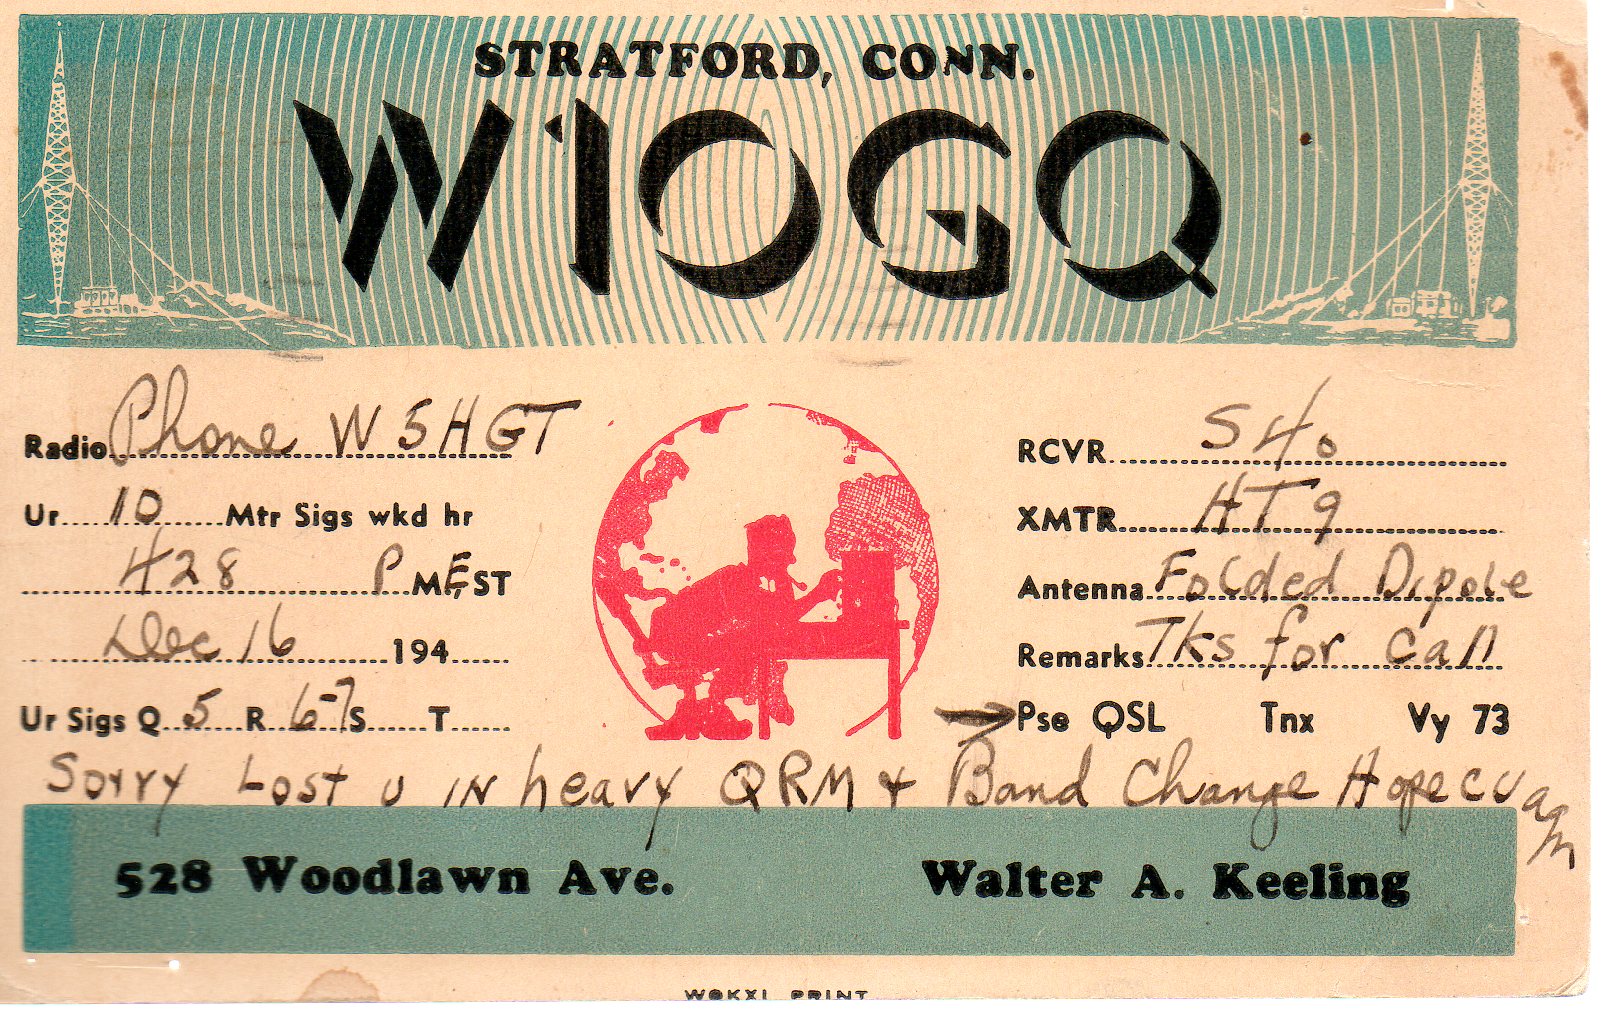 STRATFORD, CONN.
W1OGQ
Radio Phone W5HGT
Ur 10 Mtr Sigs wkd hr
428 P MEST
Dec 16 194
Ur Sigs Q 5 R 6-7 S T
RCVR S40
XMTR HT9
Antenna Folded Dipole
Remarks Tks for call
Pse QSL Tnx Vy 73
Sorry Lost u in heavy QRM + Band Change Hope cu agn
528 Woodlawn Ave. Walter A. Keeling
WØKXL PRINT